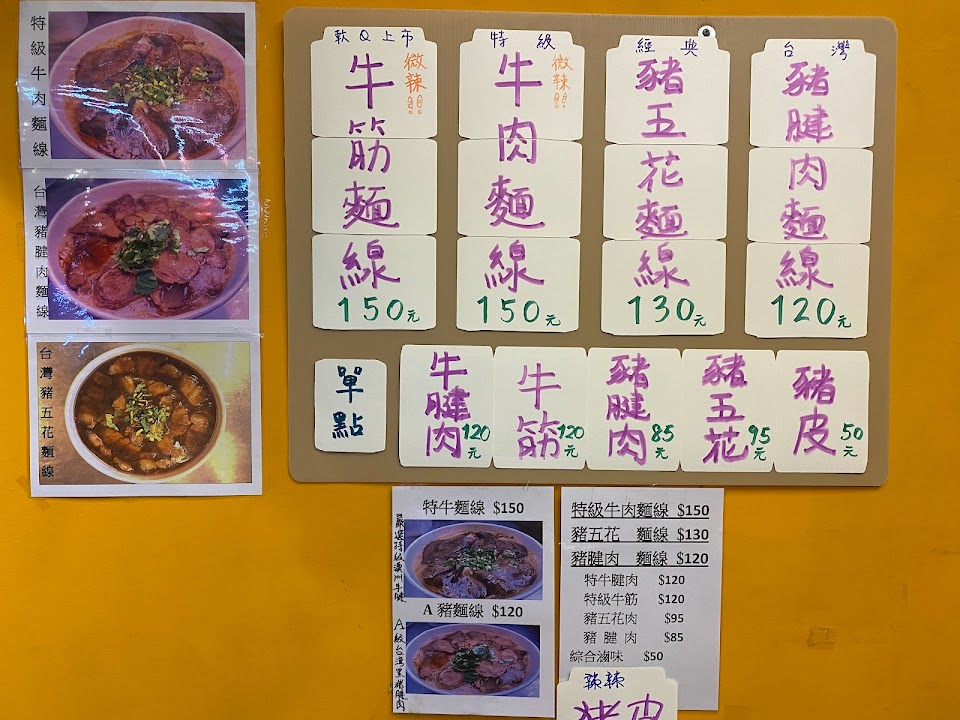 特級牛肉麵線
台灣豬腱肉麵線
台灣豬五花麵線
軟Q上市
牛筋麵線
微辣!!
150元
特級
牛肉麵線
微辣!!
150元
經典
豬五花麵線
130元
台灣
豬腱肉麵線
120元
單點
牛腱肉
120元
牛筋
120元
豬腱肉
85元
豬五花
95元
豬皮
50元
特牛麵線 $150
嚴選特級澳洲牛腱
A 豬麵線 $120
A級台灣黑豬腱肉
特級牛肉麵線 $150
豬五花 麵線 $130
豬腱肉 麵線 $120
特牛腱肉 $120
特級牛筋 $120
豬五花肉 $95
豬 腱 肉 $85
綜合滷味 $50
辣辣
豬皮